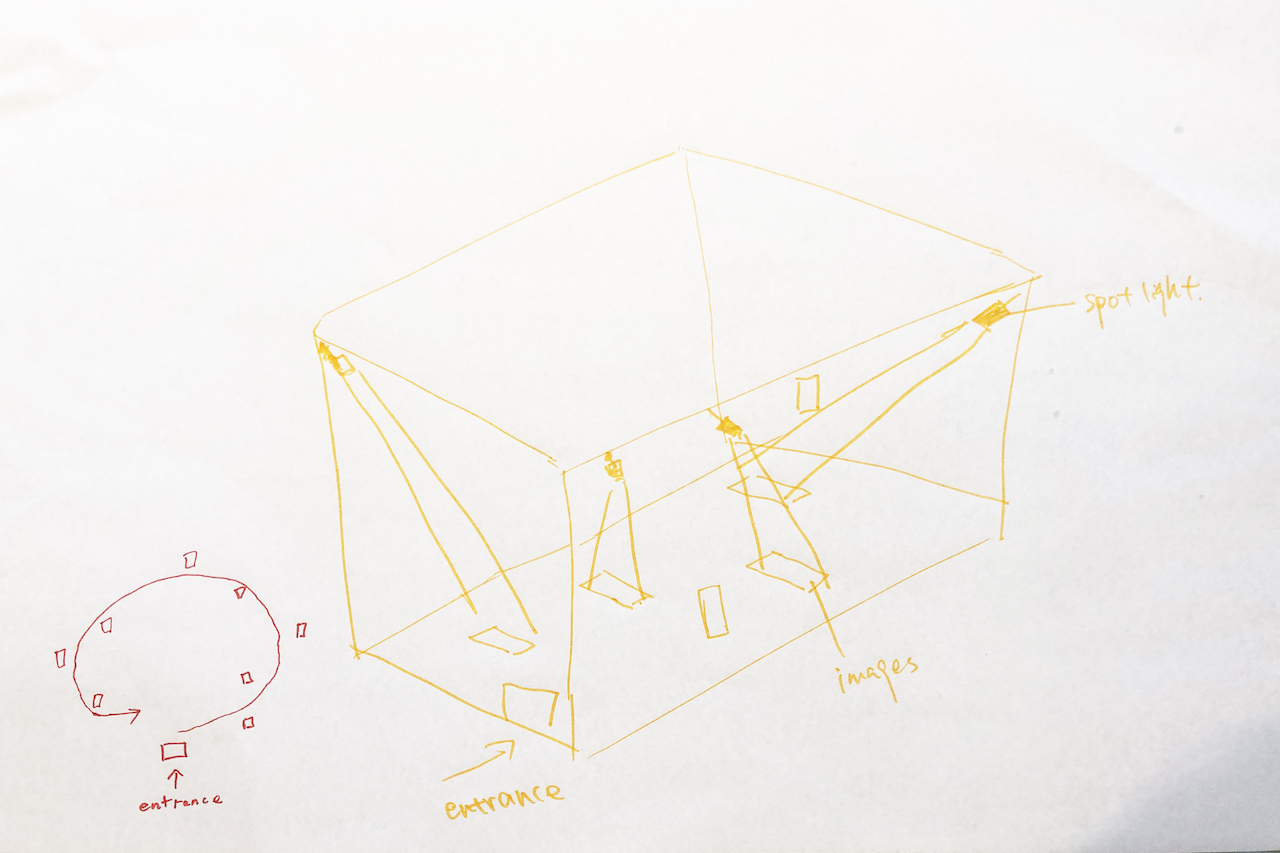 spotlight.
images
entrance
entrance